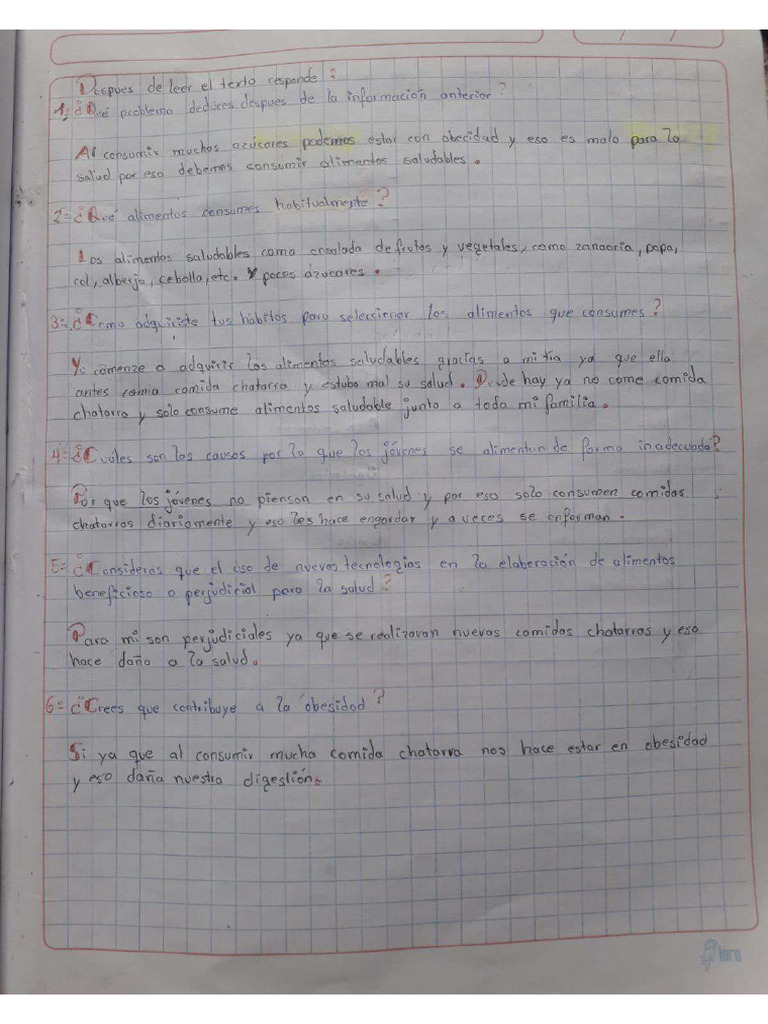 Despues de leer el texto responde:
1= ¿Qué problema deduces despues de la información anterior?
Al consumir muchos azúcares podemos estar con obecidad y eso es malo para la
salud por eso debemos consumir alimentos saludables.
2= ¿Qué alimentos consumes habitualmente?
Los alimentos saludables como ensalada de frutos y vegetales, como zanaoria, papa,
col, alberja, cebolla, etc. Y pocos ázucares.
3= ¿Cómo adquiriste tus hábitos para seleccionar los alimentos que consumes?
Yo comenze a adquirir los alimentos saludables gracias a mi tia ya que ella
antes comia comida chatarra y estubo mal su salud. Desde hay ya no come comida
chatarra y solo consume alimentos saludable junto a toda mi familia.
4= ¿Cuáles son las causas por la que los jóvenes se alimentan de forma inadecuada?
Por que los jóvenes no piensan en su salud y por eso solo consumen comidas
chatarras diariamente y eso les hace engordar y a veces se enforman.
5= ¿Consideras que el uso de nuevas tecnologías en la elaboración de alimentos
beneficioso o perjudicial para la salud?
Para mi son perjudiciales ya que se realizaran nuevas comidas chatarras y eso
hace daño a la salud.
6= ¿Crees que contribuye a la obesidad?
Si ya que al consumir mucha comida chatarra nos hace estar en obesidad
y eso daña nuestra digestión.
loro